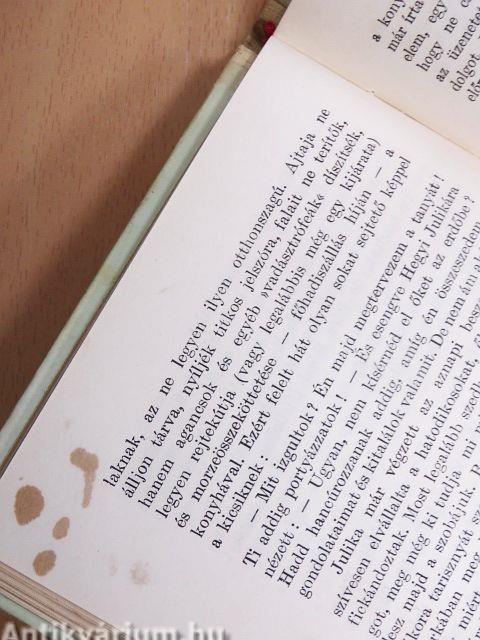 a kony
már írta
elem, egy
hogy ne e
az üzenete
dolgot
előr
laknak, az ne legyen ilyen otthonszagú. Ajtaja ne
álljon tárva, nyíljék titkos jelszóra, falait ne terítők,
hanem agancsok és egyéb »vadásztrófeák« díszítsék,
legyen rejtekútja (vagy legalábbis még egy kijárata)
és morzeösszeköttetése – főhadiszállás híján – a
konyhával. Ezért felelt hát olyan sokat sejtető képpel
a kicsiknek:
– Mit izgultok? Én majd megtervezem a tanyát!
Ti addig portyázzatok! – És esengve Hegyi Julikára
nézett: – Ugyan, nem kísérnéd el őket az erdőbe?
Hadd hancúrozzanak addig, amíg én összeszedem
gondolataimat és kitalálok valamit. De nem ám al
Julika már végzett az aznapi besz
szívesen elvállalta a hatodikosokat,
fickándoztak. Most legalább szed
got, meg még ki tudja mi
esz majd a szobájuk,
kora tarisznyát sz
kában meg
miért
Antikvárium.hu